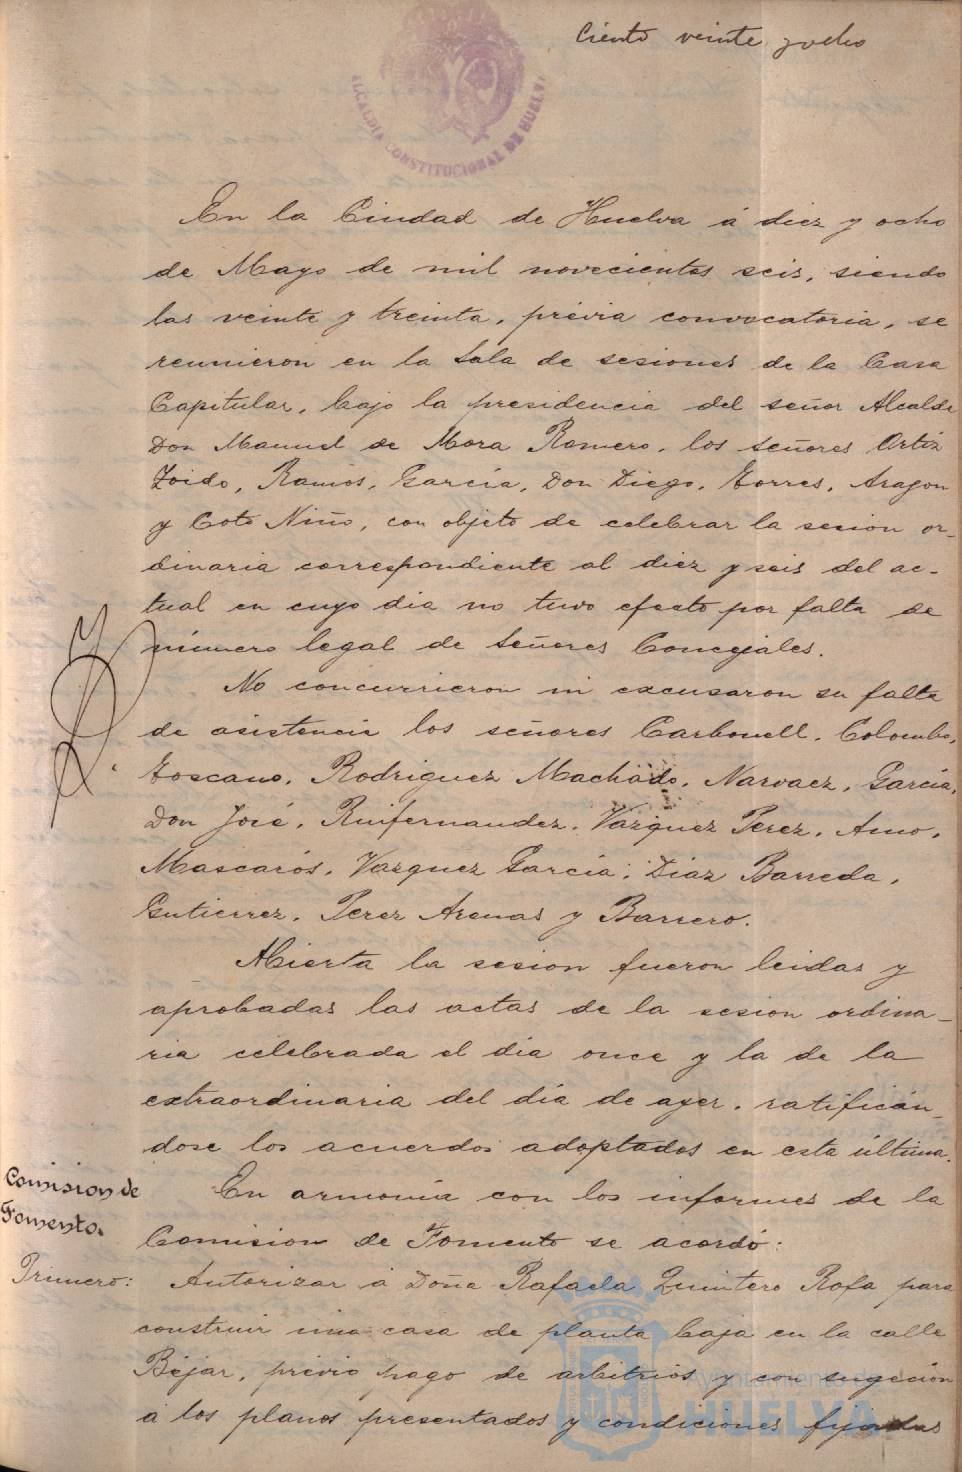 Ciento veinte y ocho
ALCALDIA CONSTITUCIONAL DE HUELVA
En la Ciudad de Huelva á diez y ocho
de Mayo de mil novecientos seis, siendo
las veinte y treinta, prévia convocatoria, se
reunieron en la Sala de sesiones de la Casa
Capitular, bajo la presidencia del señor Alcalde
Don Manuel de Mora Romero, los señores Ortiz
Zoido, Ramos, García, Don Diego, Torres, Aragon
y Coto Niño, con objeto de celebrar la sesion or-
dinaria correspondiente al diez y seis del ac-
tual en cuyo dia no tuvo efecto por falta de
número legal de Señores Concejales.
No concurrieron ni excusaron su falta
de asistencia los señores Carbonell, Colombo,
Toscano, Rodriguez Machado, Narvaez, García,
Don José, Ruifernandez, Vazquez Perez, Amo,
Mascarós, Vazquez García, Diaz Barreda,
Gutierrez, Perez Arenas y Barrero.
Abierta la sesion fueron leidas y
aprobadas las actas de la sesion ordina-
ria celebrada el dia once y la de la
extraordinaria del día de ayer, ratificán-
dose los acuerdos adoptados en esta última.
Comision de
Fomento.
En armonía con los informes de la
Comision de Fomento se acordó:
Primero: Autorizar á Doña Rafaela Quintero Rofa para
construir una casa de planta baja en la calle
Béjar, prévio pago de arbitrios y con sugecion
á los planos presentados y condiciones fijadas
Ayuntamiento de
HUELVA